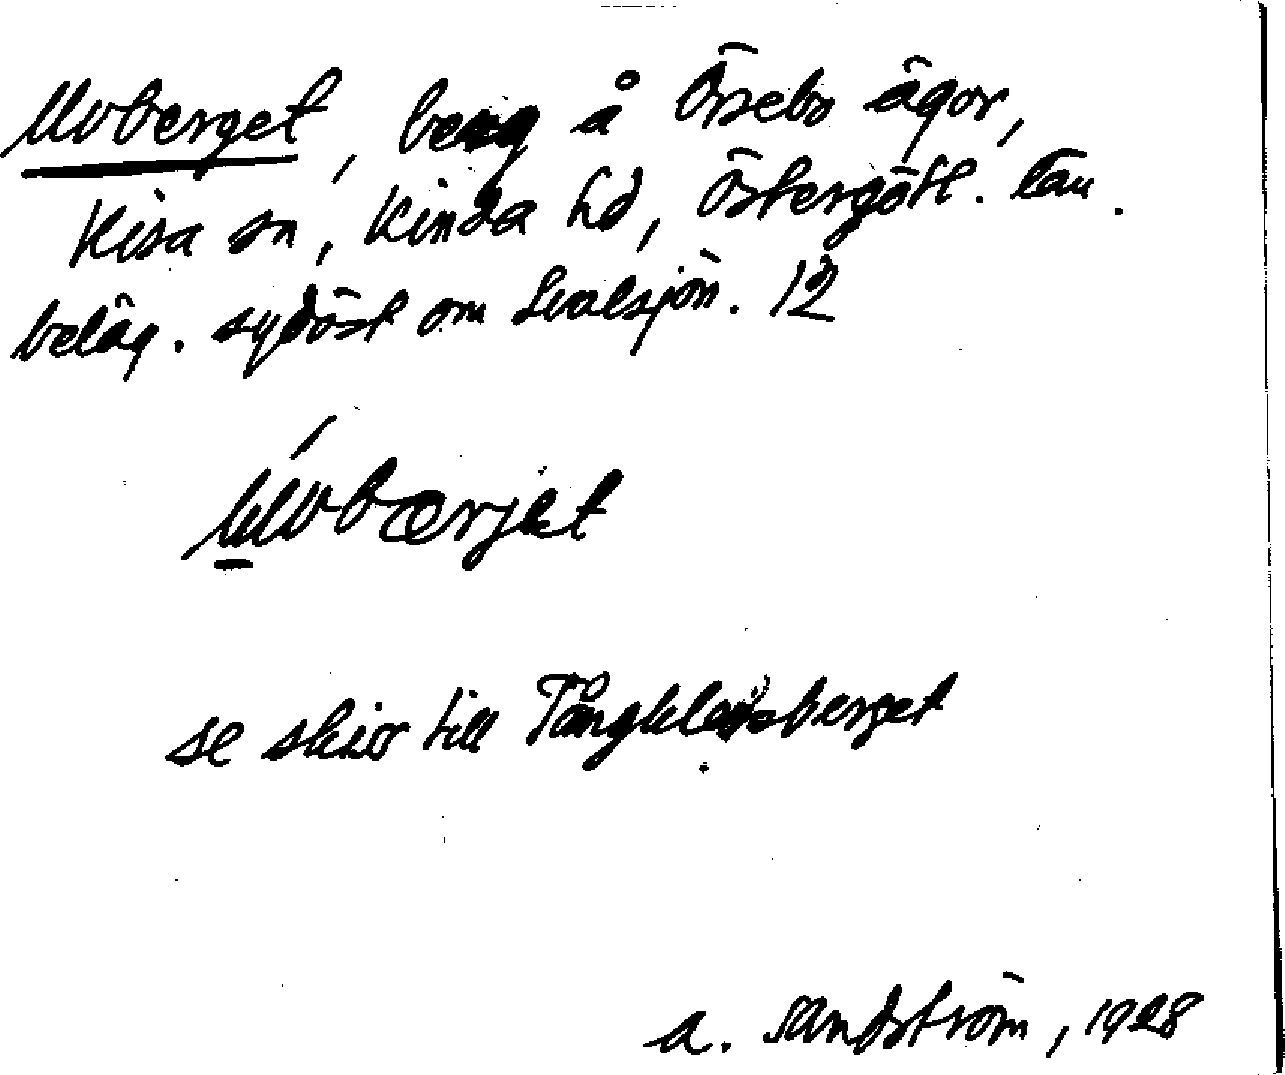 Uvberget, berg å Örsebo ägor,
Kisa sn, Kinda hd, Östergötl. län.
beläg. sydöst om Svalsjön. 12
se skiss till Tångkleusberget
A. Sandström, 1928